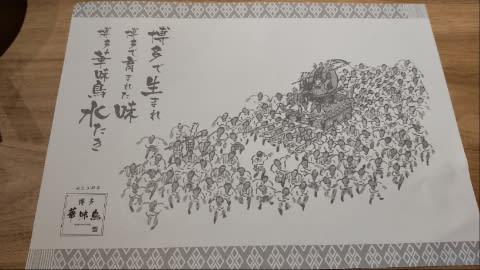 博多で生まれ
博多で育まれた味
博多華味鳥水たき
博多
華味鳥